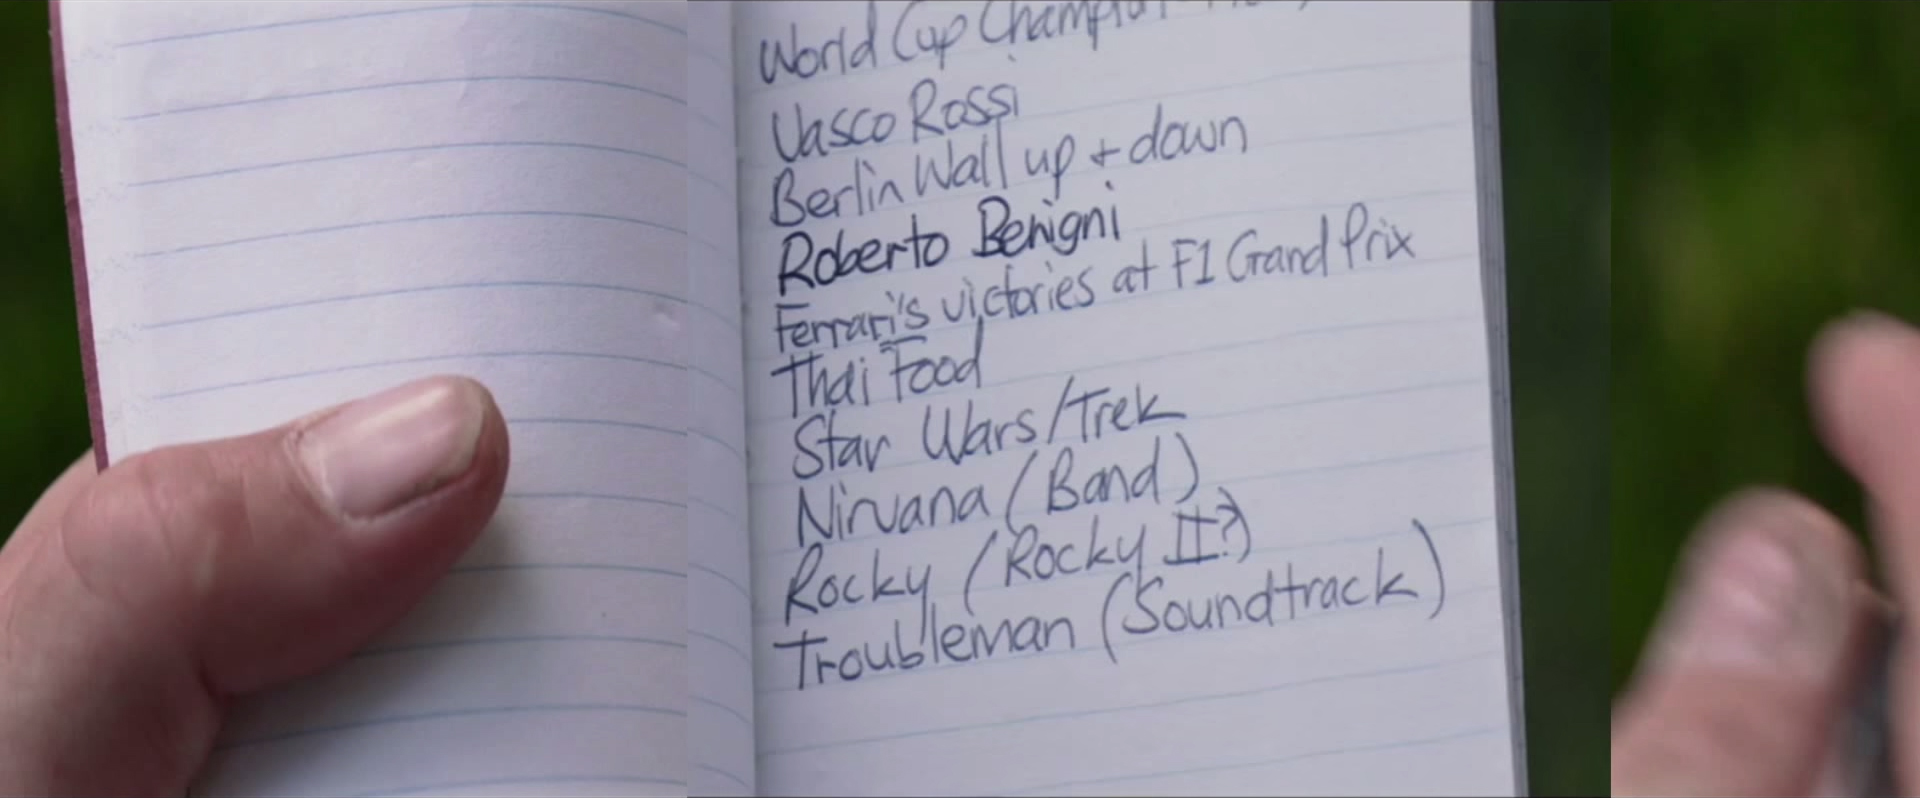 World Cup Champion
Vasco Rossi
Berlin Wall up + down
Roberto Benigni
Ferrari's victories at F1 Grand Prix
Thai Food
Star Wars/Trek
Nirvana (Band)
Rocky (Rocky II?)
Troubleman (Soundtrack)